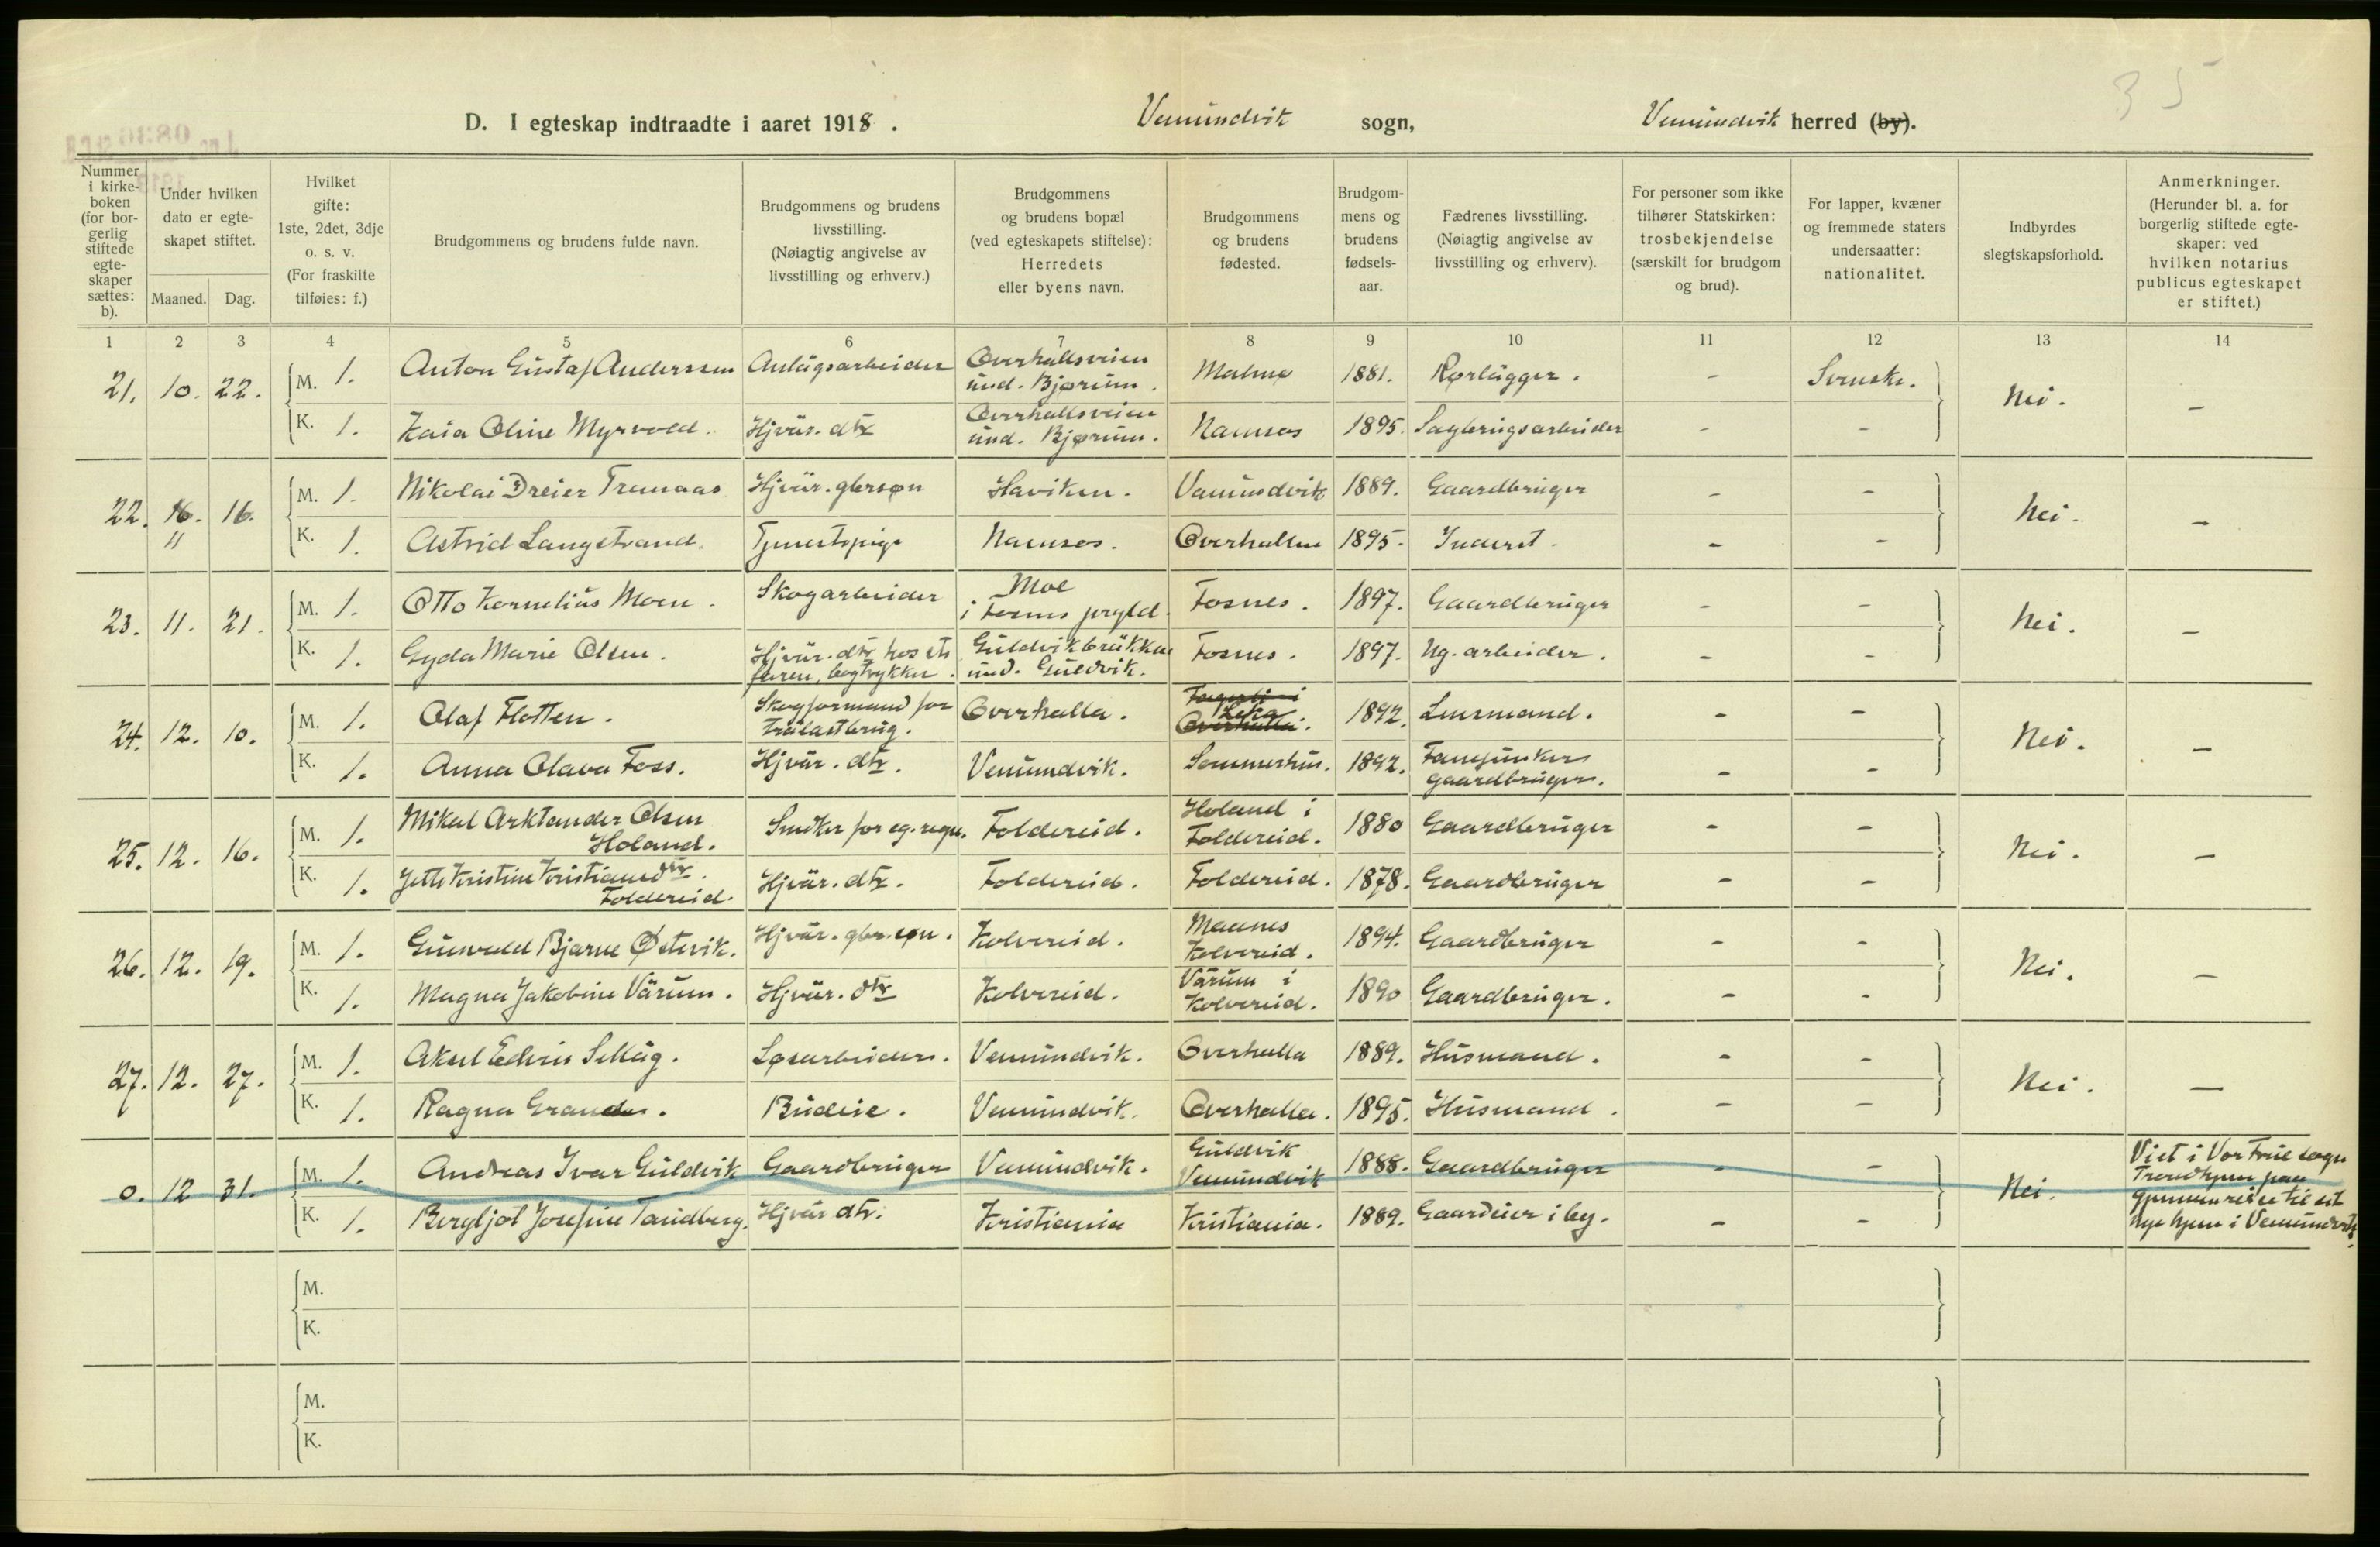 35
D. I egteskap indtraadte i aaret 1918. Vemundvik sogn, Vemundvik herred (by).
Nummer i kirke-boken (for bor-gerlig stiftede egte-skaper sættes: b).
Under hvilken dato er egte-skapet stiftet.
Maaned. Dag.
Hvilket gifte: 1ste, 2det, 3dje o. s. v. (For fraskilte tilføies: f.)
Brudgommens og brudens fulde navn.
Brudgommens og brudens livsstilling. (Nøiagtig angivelse av livsstilling og erhverv.)
Brudgommens og brudens bopæl (ved egteskapets stiftelse): Herredets eller byens navn.
Brudgommens og brudens fødested.
Brudgom-mens og brudens fødsels-aar.
Fædrenes livsstilling. (Nøiagtig angivelse av livsstilling og erhverv).
For personer som ikke tilhører Statskirken: trosbekjendelse (særskilt for brudgom og brud).
For lapper, kvæner og fremmede staters undersaatter: nationalitet.
Indbyrdes slegtskapsforhold.
Anmerkninger. (Herunder bl. a. for borgerlig stiftede egte-skaper: ved hvilken notarius publicus egteskapet er stiftet.)
1 2 3 4 5 6 7 8 9 10 11 12 13 14
21. 10. 22. M. 1. Anton Gustaf Anderssen Anlægsarbeider Overhallsveien und. Bjørum. Malmø 1881. Rørlægger. - Svenske. Nei. -
K. 1. Kaia Oline Myrvold. Hjvær. dtr Overhallsveien und. Bjørum. Namsos 1895. Sagbrugsarbeider - -
22. 10. 11 16. M. 1. Nikolai Dreier Tranaas Hjvær. gbrsøn Haviken. Vemundvik 1889. Gaardbruger - - Nei. -
K. 1. Astrid Langstrand. Tjenestepige Namsos. Overhallen 1895. Inderst. - -
23. 11. 21. M. 1. Otto Kornelius Moen. Skogarbeider Moe i Fosnes prgld. Fosnes. 1897. Gaardbruger - - Nei. -
K. 1. Gyda Marie Olsen. Hjvær. dtr hos ste faren, bogtrykker. Guldvikbrukken und. Guldvik. Fosnes. 1897. Ug. arbeider. - -
24. 12. 10. M. 1. Olaf Flotten. Skogformand for Trælastbrug. Overhalla. Leka Overhalla. 1892. Lensmand. - - Nei. -
K. 1. Anna Olava Foss. Hjvær. dtr. Vemundvik. Sommerhus. 1892. Fanejunker gaardbruger. - -
25. 12. 16. M. 1. Mikal Arktander Olsen Holand. Snedker for eg. regn. Foldereid. Holand i Foldereid. 1880 Gaardbruger - - Nei. -
K. 1. Jette Kristine Kristiansdtr. Foldereid. Hjvær. dtr. Foldereid. Foldereid. 1878. Gaardbruger - -
26. 12. 19. M. 1. Gunvald Bjarne Østervik. Hjvær. gbr. søn. Kolvereid. Maanes Kolvereid. 1894. Gaardbruger - - Nei. -
K. 1. Magna Jakobine Værum. Hjvær. dtr Kolvereid. Værum i Kolvereid. 1890 Gaardbruger. - -
27. 12. 27. M. 1. Aksel Edvin Sellæg. Løsarbeider. Vemundvik. Overhalla 1889. Husmand. - - Nei. -
K. 1. Ragna Grande. Budeie. Vemundvik. Overhalla. 1895. Husmand. - -
0. 12 31. M. 1. Andreas Ivar Guldvik Gaardbruger Vemundvik. Guldvik Vemundvik 1888. Gaardbruger - - Nei. Viet i Vor Frue sogn Trondhjem paa gjennemreise til sit nye hjem i Vemundvik.
K. 1. Bergljot Josefine Tandberg. Hjvær dtr. Kristiania Kristiania. 1889. Gaardeier i by. - -
M.
K.
M.
K.